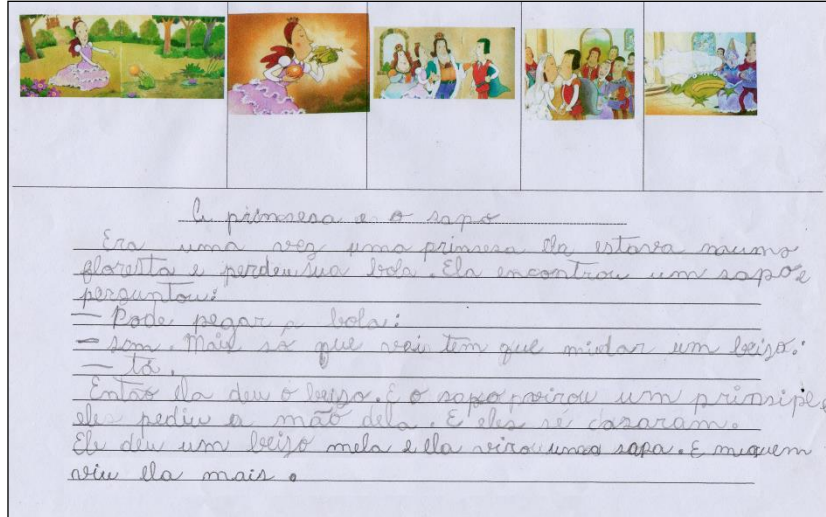 A primsesa e o sapo
Era uma vez uma primsesa ela estava nauma
floresta e perdeu sua bola. Ela encontrou um sapo e
perguntou:
— Pode pegar a bola:
— som. Mais so que vai tem que mindar um beijo:
— tá.
Então ela deu o beijo. E o sapo virou um primsipe e
eles pediu a mão dela. E eles sé cazaram.
Ele deu um beijo mela e ela virou uma sapa. E miquem
viu ela mais.